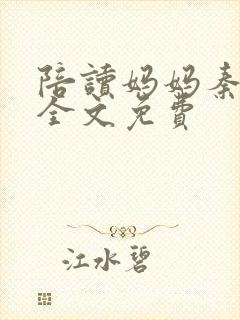 陪讀妈妈秦
全文免費
江水碧